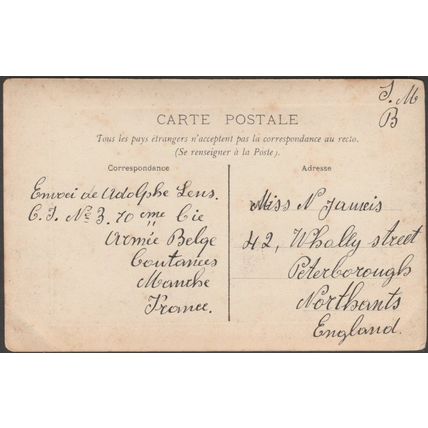 S. M
B
CARTE POSTALE
Tous les pays étrangers n'acceptent pas la correspondance au recto.
(Se renseigner à la Poste).
Correspondance
Envoi de Adolphe Lens.
C. I. Nº 3. 10 eme Cie
Armée Belge
Coutances
Manche
France.
Adresse
Miss N Jaures
42, Whally street
Peterborough
Northants
England.